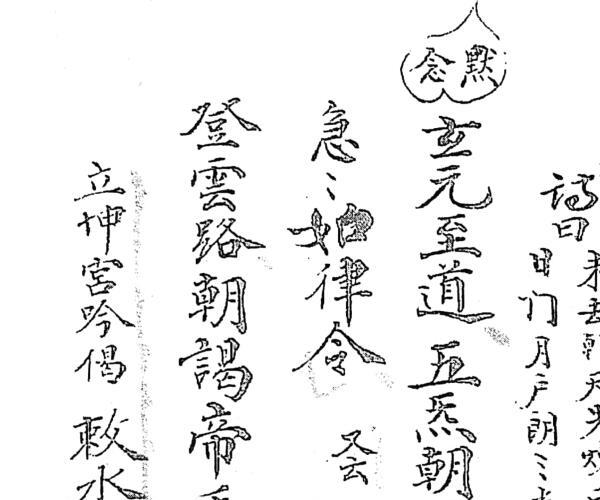 詩曰
日门月户朗〻
默念
玄元至道 五炁朝
急〻如律令
又云
登雲路朝謁帝
立坤宮吟偈 敕水